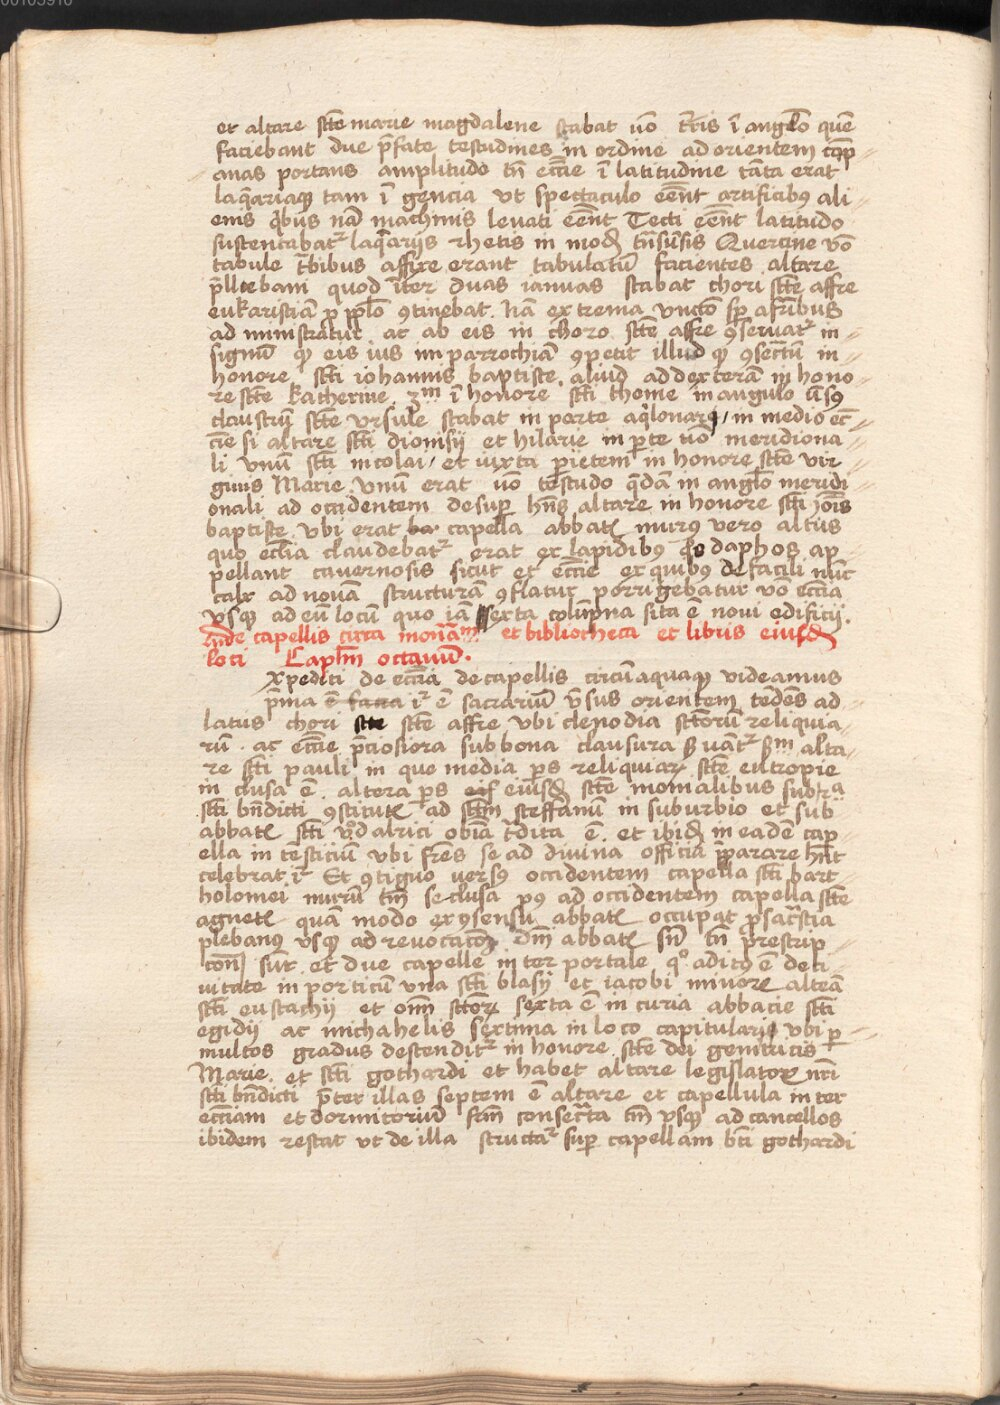 00103916
et altare scte marie magdalene stabat uo t̃ris ī anglo que
faciebant due p̃fate testudines in ordine ad orientem cāp
anas portans amplitudo tn̄ eccīe ī latitudine tāta erat
laq̄ariaqꝫ tam ī gencia ut spectaculo eēnt artificibꝰ ali
enis qͥbus nā machinis levati eēnt Tecti eēnt latitudo
sustentabatᷣ laq̄arijs rhetis in modꝫ tn̄suersis Quercine vō
tabule t̃bibus affixe erant tabulatū facientes altare
p̃llebani quod īter duas ianuas stabat chori scte affre
eukaristiā p pplo ꝯtinebat. Nā extrema unctō sp̄ a fr̄ibus
ad ministratur ac ab eis in choro scte affre ꝯseruatᷣ in
signū qꝫ eis ius in parrochiā ꝯpetit illud qꝫ ꝯsectū in
honore scti iohannis baptiste. aliud ad dexterā in hono
re scte katherine. 3m ī honore scti thome in angulo v̄sꝰ
claustrū scte ursule stabat in parte aqͥlonarj / in medio ec
cīe si altare scti dionisij et hilarie in p̲te uō meridiona
li unū scti nicolai / et iuxta p̲ietem in honore scte vir
ginis Marie unū erat uō testudo q̄dā in anglo meridi
onali ad occidentem desup̲ hn̄s altare in honore scti ioīs
baptiste ubi erat capella abbatꝭ murus vero altus
quo ecclīa claudebatᷣ erat ex lapidibꝰ qͦs daphos ap
pellant cavernosis sicut et eccīe ex quibꝰ de facili nūc
calx ad novā structurā ꝯflatur porrigebatur vō eccīa
vsqꝫ ad eū locū quo iā sexta colūpna sita ē novi edificij.
de capellis circa monām et bibliotheca et libris eiusdꝫ
loci Caplm octavū.
Xpediti de eccīa de capellis circūaquaqꝫ videamus
p̃ma ē iᷣ ē sacrariū v̄sus orientem tēdēs ad
latus chori scte affre ubi clenodia sctorū reliquia
rū. ac eccīe p̄ciosiora sub bona clausura suātᷣ 2m alta
re scti pauli in quo media p̲s reliquiarꝫ scte eutropie
inclusa ē. altera p̲s eiusdꝫ scte monialibus sub ra
scti bn̄dicti ꝯstitutꝭ ad sctm steffanū in suburbio et sub
abbatꝭ scti vͦdalrici obīa t̃dita ē. et ibidꝫ in eadē cap
ella in testiciū ubi fr̄es se ad divina officia p̄parare hn̄t
celebrat iᷣ Et ꝯtiguo versꝰ occidentem capella scti bart
holomei murū tm̄ seclusa pꝰ ad occidentem capella scte
agnetꝭ quā modo ex ꝯsensu abbatꝭ occupat p sac̃stia
plebanꝰ vsqꝫ ad revocacōꝫ dn̄i abbatꝭ sn̄ tn̄ p̄rescrip
conꝭ sūt et due capelle inter portale qͦ aditꝰ ē de ci
vitate in porticū una scti blasij et iacobi minorꝭ alteā
scti eustachij et oīm sctorꝫ sexta ē in curia abbacie scti
egidij ac michahelis septima in loco capitulari ubi p̲
multos gradus descenditᷣ in honore scte dei genitricis
Marie. et scti gothardi et habet altare legislatorꝭ nr̄i
scti bn̄dicti p̄ter illas septem ē altare et capellula inter
ecclīam et dormitoriū conser̃ta tm̄ vsqꝫ ad cancellos
ibidem restat ut de illa structᷣa sup̲ capellam bt̄i gothardi